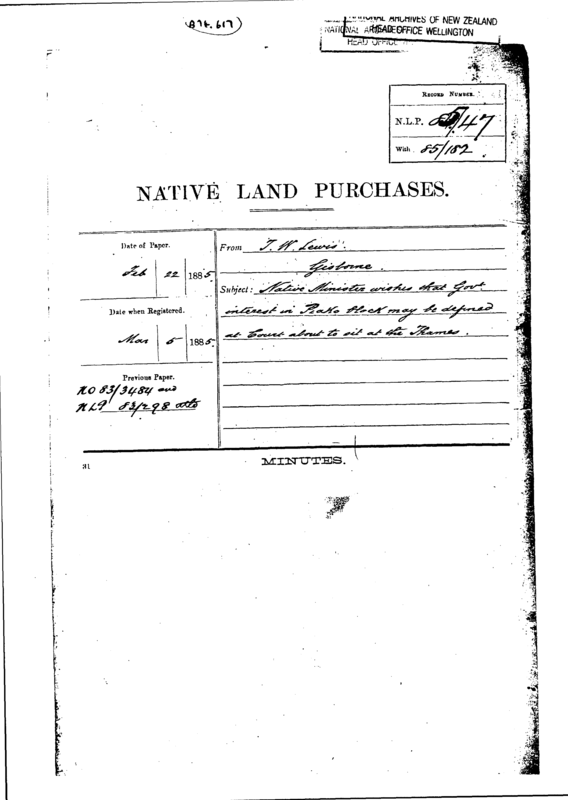 A74.617
NATIONAL ARCHIVES OF NEW ZEALAND
HEAD OFFICE WELLINGTON
NATIONAL
HEAD OFFICE
RECORD NUMBER.
N.L.P. 85/47
With 85/182
NATIVE LAND PURCHASES.
Date of Paper.
Feb 22 1885.
Date when Registered.
Mar 5 1885.
Previous Paper.
NO 83/3484 and
NLP 83/298 atts
From T. W. Lewis.
Gisborne.
Subject: Native Minister wishes that Govt
interest in Piako block may be defined
at Court about to sit at the Thames.
31
MINUTES.